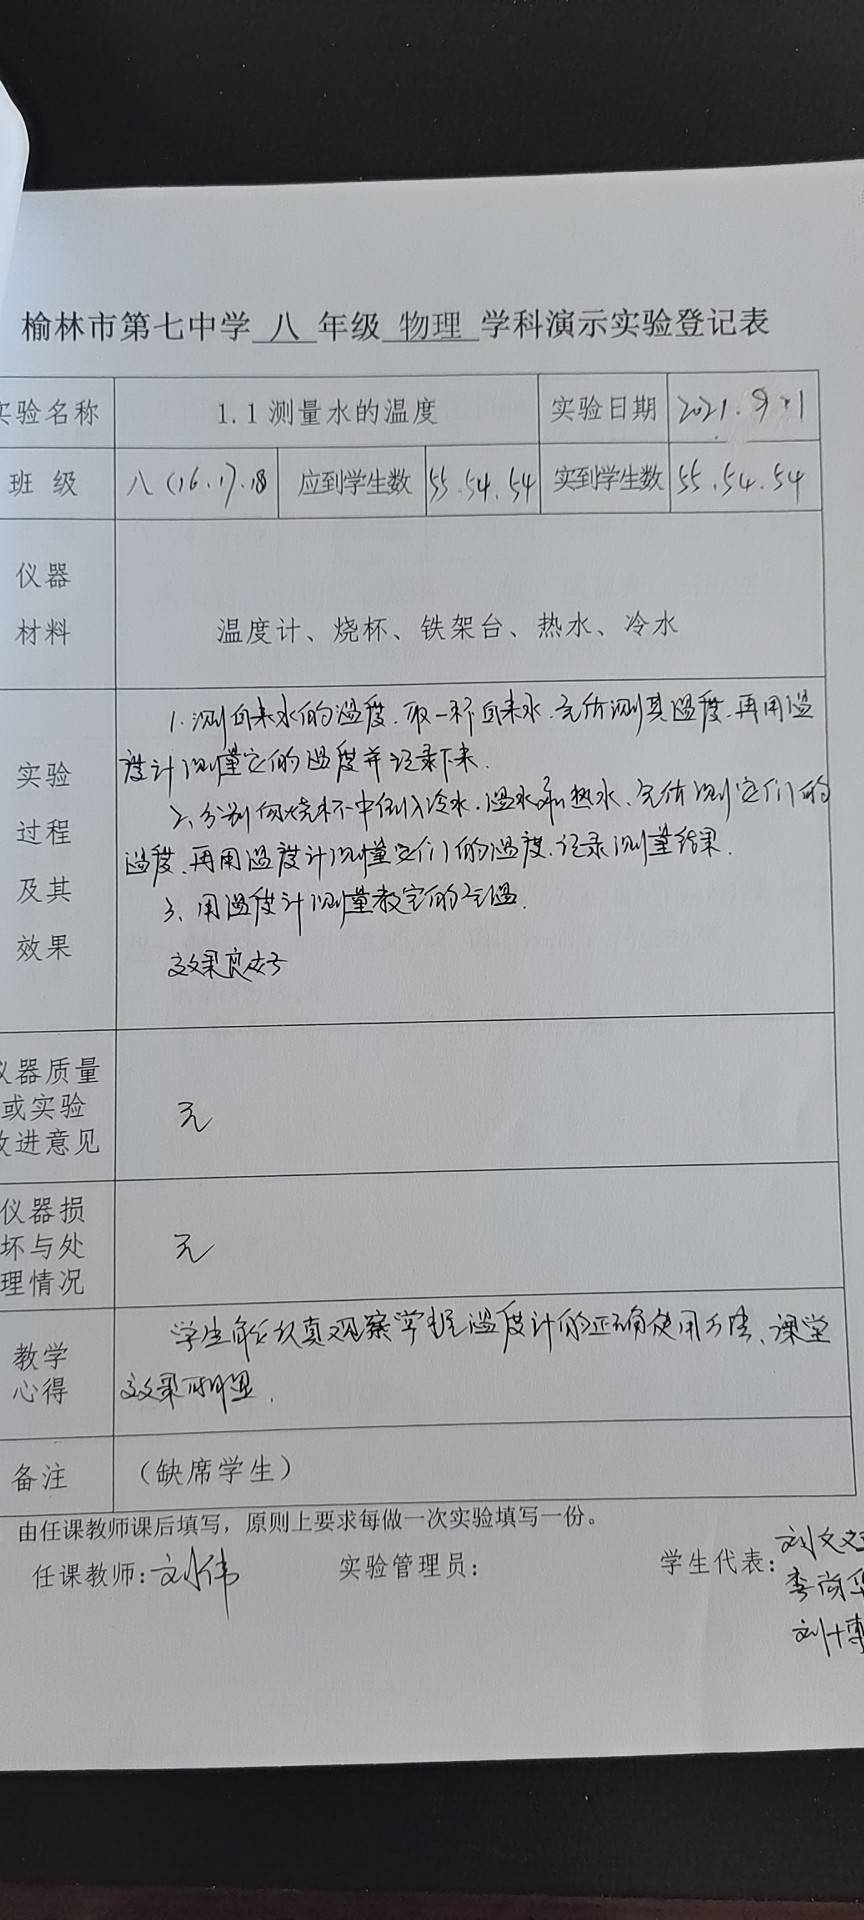 榆林市第七中学 八 年级 物理 学科演示实验登记表
实验名称 1.1 测量水的温度 实验日期 2021.9.1
班 级 八(16.17.18 应到学生数 55.54.54 实到学生数 55.54.54
仪器
材料
温度计、烧杯、铁架台、热水、冷水
实验
过程
及其
效果
1.测自来水的温度.取一杯自来水.先估测其温度.再用温
度计测量它的温度并记录下来.
2、分别向烧杯中倒入冷水.温水和热水、先估测它们的
温度、再用温度计测量它们的温度.记录测量结果.
3、用温度计测量教室的气温.
效果良好
仪器质量
或实验
改进意见
无
仪器损
坏与处
理情况
无
教学
心得
学生能认真观察掌握温度计的正确使用方法、课堂
效果明显.
备注 (缺席学生)
由任课教师课后填写,原则上要求每做一次实验填写一份。
任课教师:刘伟 实验管理员: 学生代表:刘文
李尚华
刘博